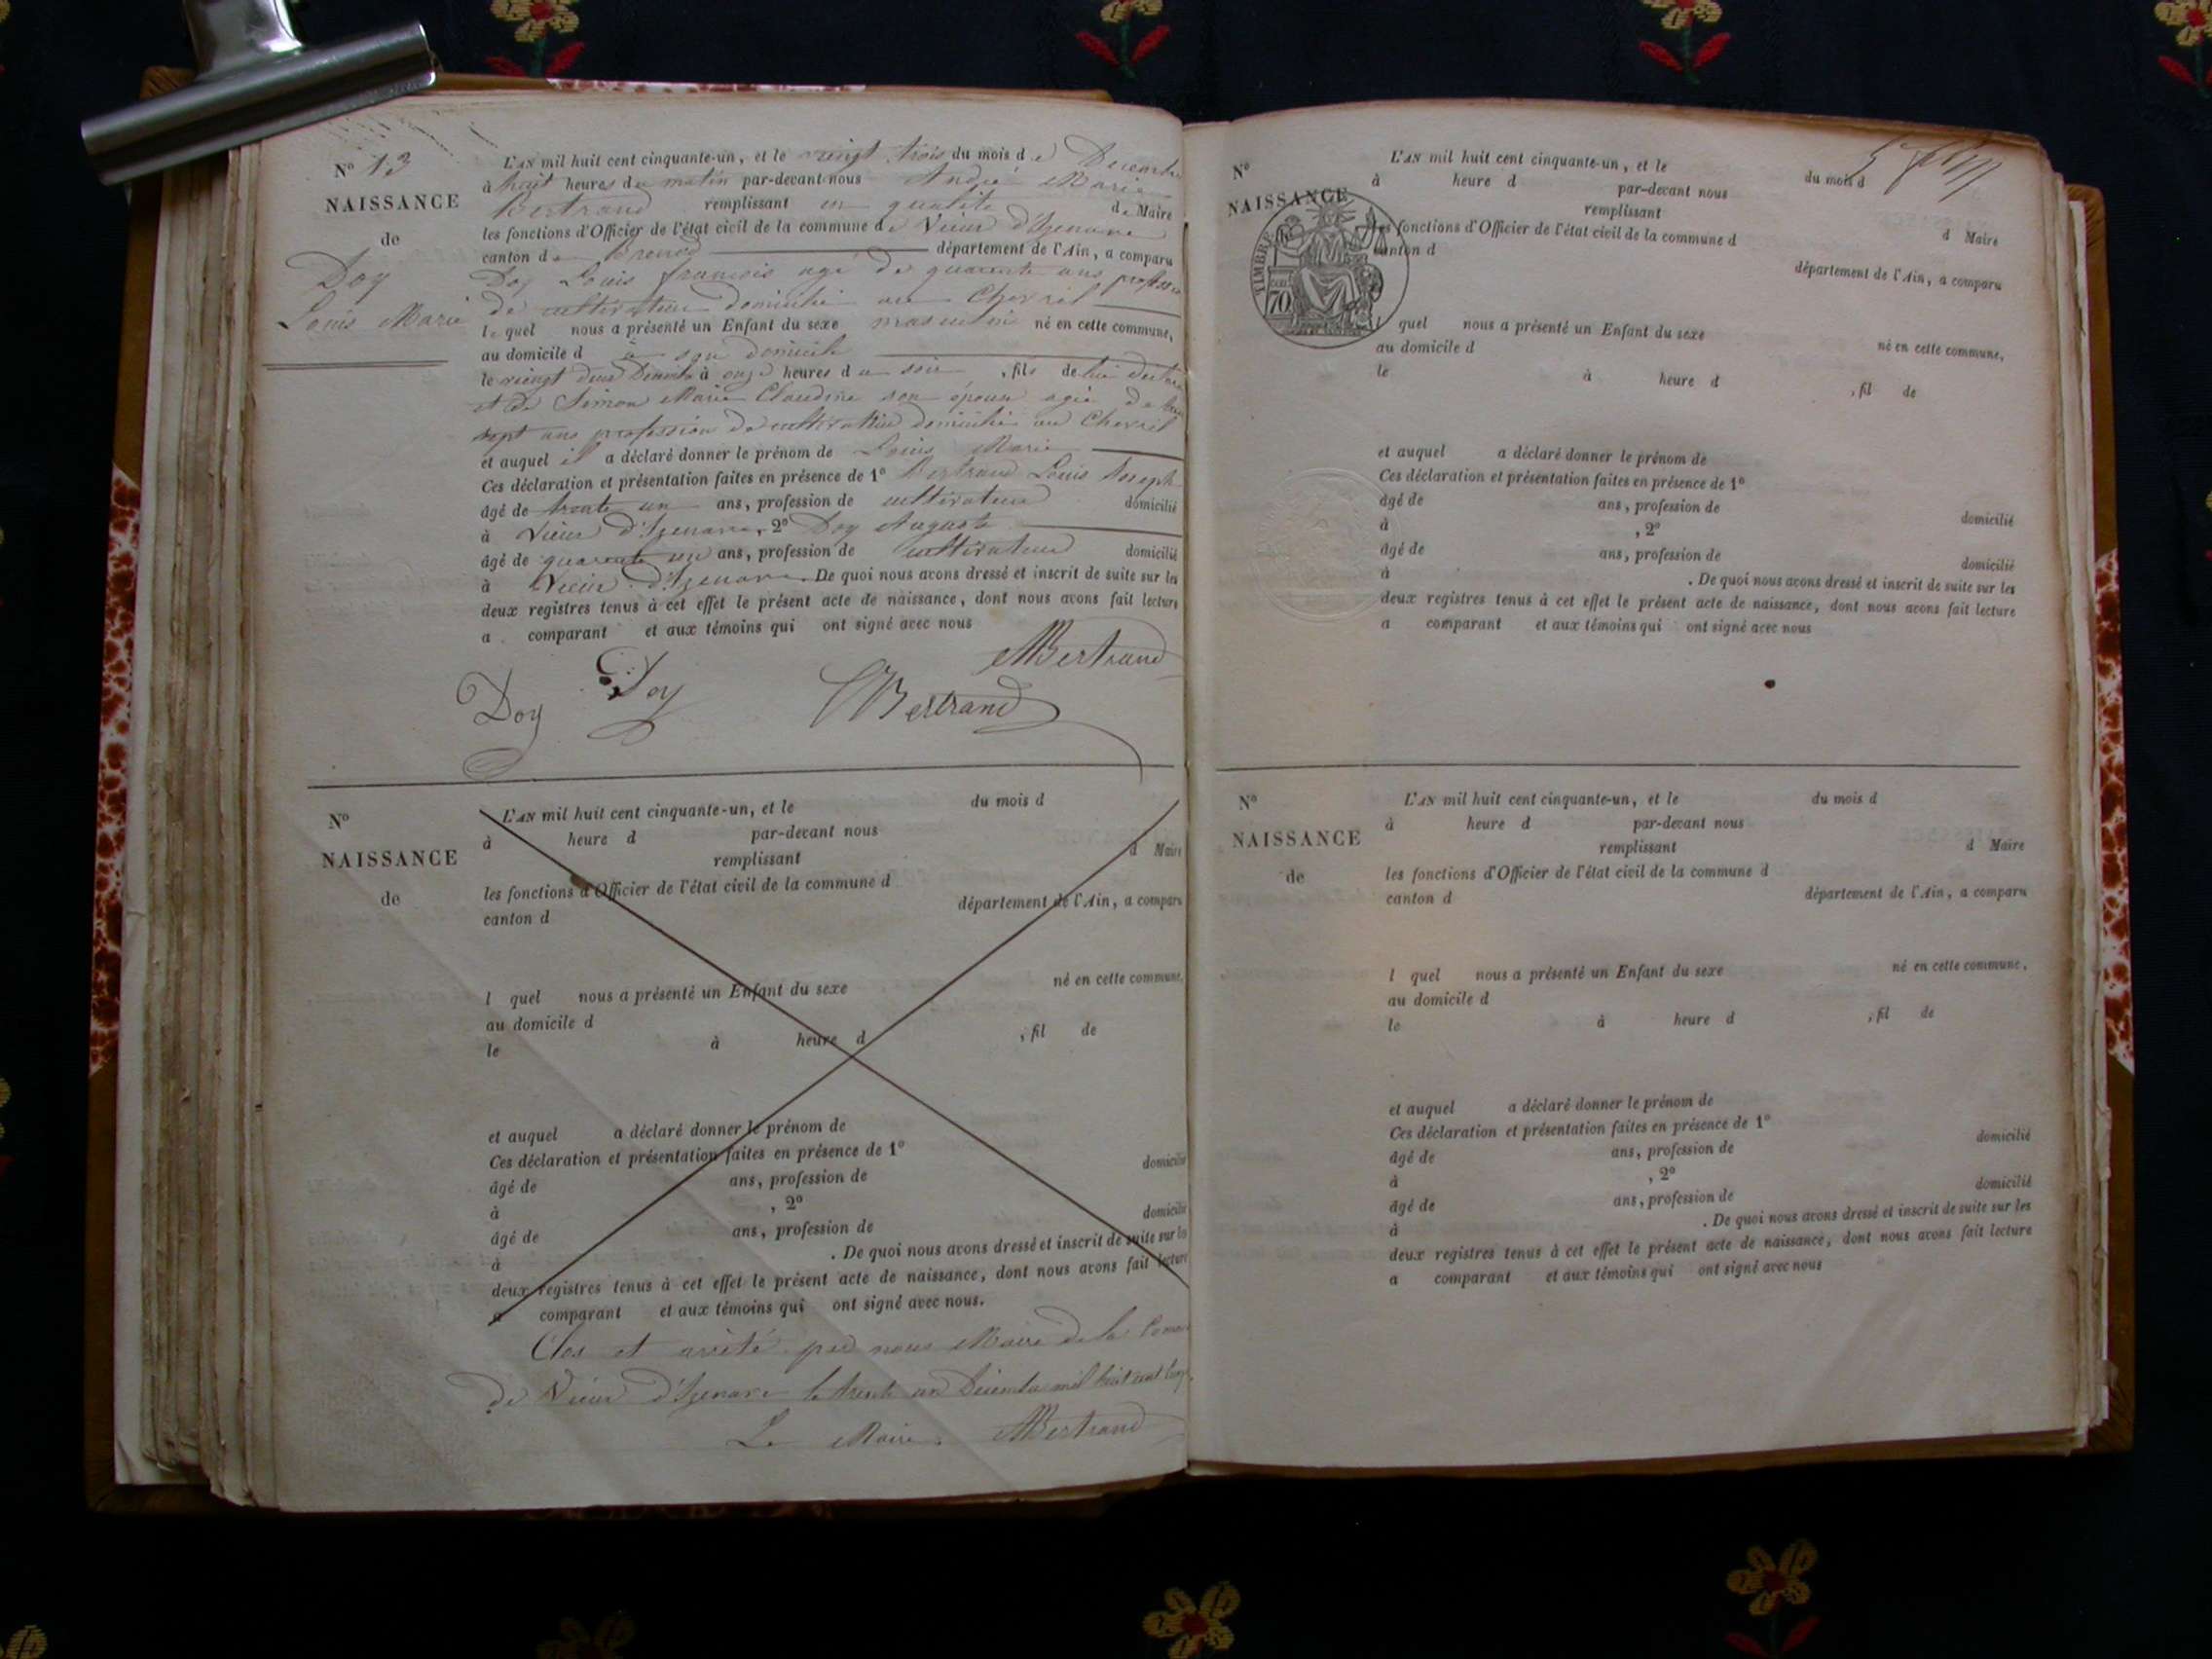 N° 13
NAISSANCE
de
Doy
Louis Marie
L'AN mil huit cent cinquante-un, et le vingt trois du mois de Décembre
à huit heures du matin par-devant nous André Marie
Bertrand remplissant en qualité de Maire
les fonctions d'Officier de l'état civil de la commune de Vieux d'Izenave
canton de Brenod département de l'Ain, a comparu
Doy Louis François agé de quarante ans profession
de cultivateur domicilié au Chevril
lequel nous a présenté un Enfant du sexe masculin né en cette commune,
au domicile d à son domicile
le vingt deux Décembre à onze heures du soir, fils de lui
et de Simon Marie Claudine son épouse agée de
sept ans profession de cultivatrice domiciliée au Chevril
et auquel il a déclaré donner le prénom de Louis Marie
Ces déclaration et présentation faites en présence de 1° Bertrand Louis Joseph
âgé de trente un ans, profession de cultivateur domicilié
à Vieux d'Izenave, 2° Doy Auguste
âgé de quarante un ans, profession de cultivateur domicilié
à Vieux d'Izenave. De quoi nous avons dressé et inscrit de suite sur les
deux registres tenus à cet effet le présent acte de naissance, dont nous avons fait lecture
a comparant et aux témoins qui ont signé avec nous
Bertrand
Doy Doy Bertrand
N°
NAISSANCE
de
L'AN mil huit cent cinquante-un, et le du mois d
à heure d par-devant nous
remplissant d Maire
les fonctions d'Officier de l'état civil de la commune d
canton d département de l'Ain, a comparu
l quel nous a présenté un Enfant du sexe né en cette commune,
au domicile d
le à heure d , fil de
et auquel a déclaré donner le prénom de
Ces déclaration et présentation faites en présence de 1°
âgé de ans, profession de domicilié
à , 2°
âgé de ans, profession de domicilié
à . De quoi nous avons dressé et inscrit de suite sur les
deux registres tenus à cet effet le présent acte de naissance, dont nous avons fait lecture
a comparant et aux témoins qui ont signé avec nous.
Clos et arrêté par nous Maire de la
de Vieux d'Izenave le trente un Décembre mil huit cent
Le Maire Bertrand
N°
NAISSANCE
TIMBRE
70
L'AN mil huit cent cinquante-un, et le du mois d
à heure d par-devant nous
remplissant
les fonctions d'Officier de l'état civil de la commune d d Maire
canton d département de l'Ain, a comparu
l quel nous a présenté un Enfant du sexe
au domicile d né en cette commune,
le à heure d , fil de
et auquel a déclaré donner le prénom de
Ces déclaration et présentation faites en présence de 1°
âgé de ans, profession de domicilié
à , 2°
âgé de ans, profession de domicilié
à . De quoi nous avons dressé et inscrit de suite sur les
deux registres tenus à cet effet le présent acte de naissance, dont nous avons fait lecture
a comparant et aux témoins qui ont signé avec nous
N°
NAISSANCE
de
L'AN mil huit cent cinquante-un, et le du mois d
à heure d par-devant nous
remplissant d Maire
les fonctions d'Officier de l'état civil de la commune d
canton d département de l'Ain, a comparu
l quel nous a présenté un Enfant du sexe né en cette commune,
au domicile d
le à heure d , fil de
et auquel a déclaré donner le prénom de
Ces déclaration et présentation faites en présence de 1°
âgé de ans, profession de domicilié
à , 2°
âgé de ans, profession de domicilié
à . De quoi nous avons dressé et inscrit de suite sur les
deux registres tenus à cet effet le présent acte de naissance, dont nous avons fait lecture
a comparant et aux témoins qui ont signé avec nous